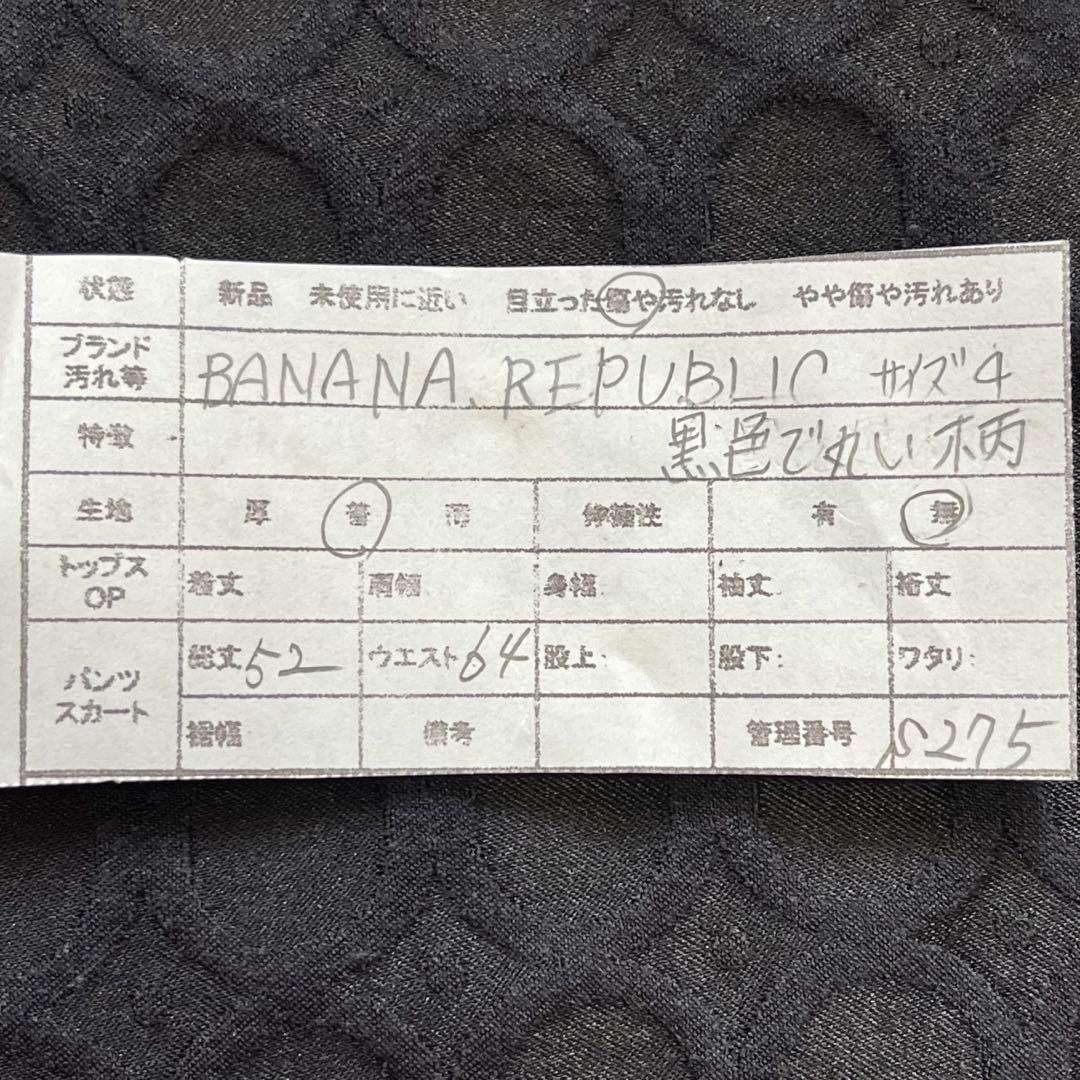 状態 新品 未使用に近い 目立った傷や汚れなし やや傷や汚れあり
ブランド
汚れ等 BANANA REPUBLIC サイズ4
特徴 黒色で丸い柄
生地 厚 普 薄 伸縮性 有 無
トップス
OP 着丈 肩幅 身幅 袖丈 裄丈
パンツ
スカート 総丈 52 ウエスト 64 股上: 股下: ワタリ:
裾幅 備考 管理番号 S275